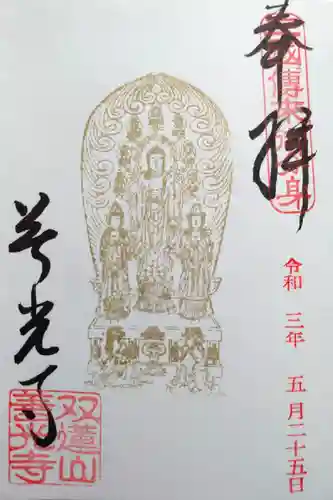 奉拝
三國傳来
身
令和 三年 五月二十五日
善光寺
双蓮山
善光寺